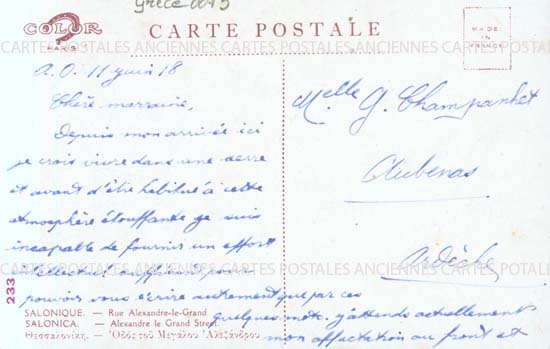 Grèce 0043
COLOR
PARIS
CARTE POSTALE
MADE
IN
FRANCE
CARTES POSTALES ANCIENNES CARTES POSTALES ANCIENNES CARTES POSTALES
A.O. 11 juin 18
Chère marraine,
Depuis mon arrivée ici
je crois vivre dans une serre
et avant d'être habitué à cette
atmosphère étouffante je suis
incapable de fournir un effort
intellectuel suffisant pour
pouvoir vous écrire autrement que par ces
quelques mots. j'attends actuellement
mon affectation au front et
Melle G. Champanhet
Aubenas
Ardèche
233
SALONIQUE. — Rue Alexandre-le-Grand
SALONICA. — Alexandre le Grand Street.
Θεσσαλονίκη. — Ὁδὸς τοῦ Μεγάλου Ἀλεξάνδρου